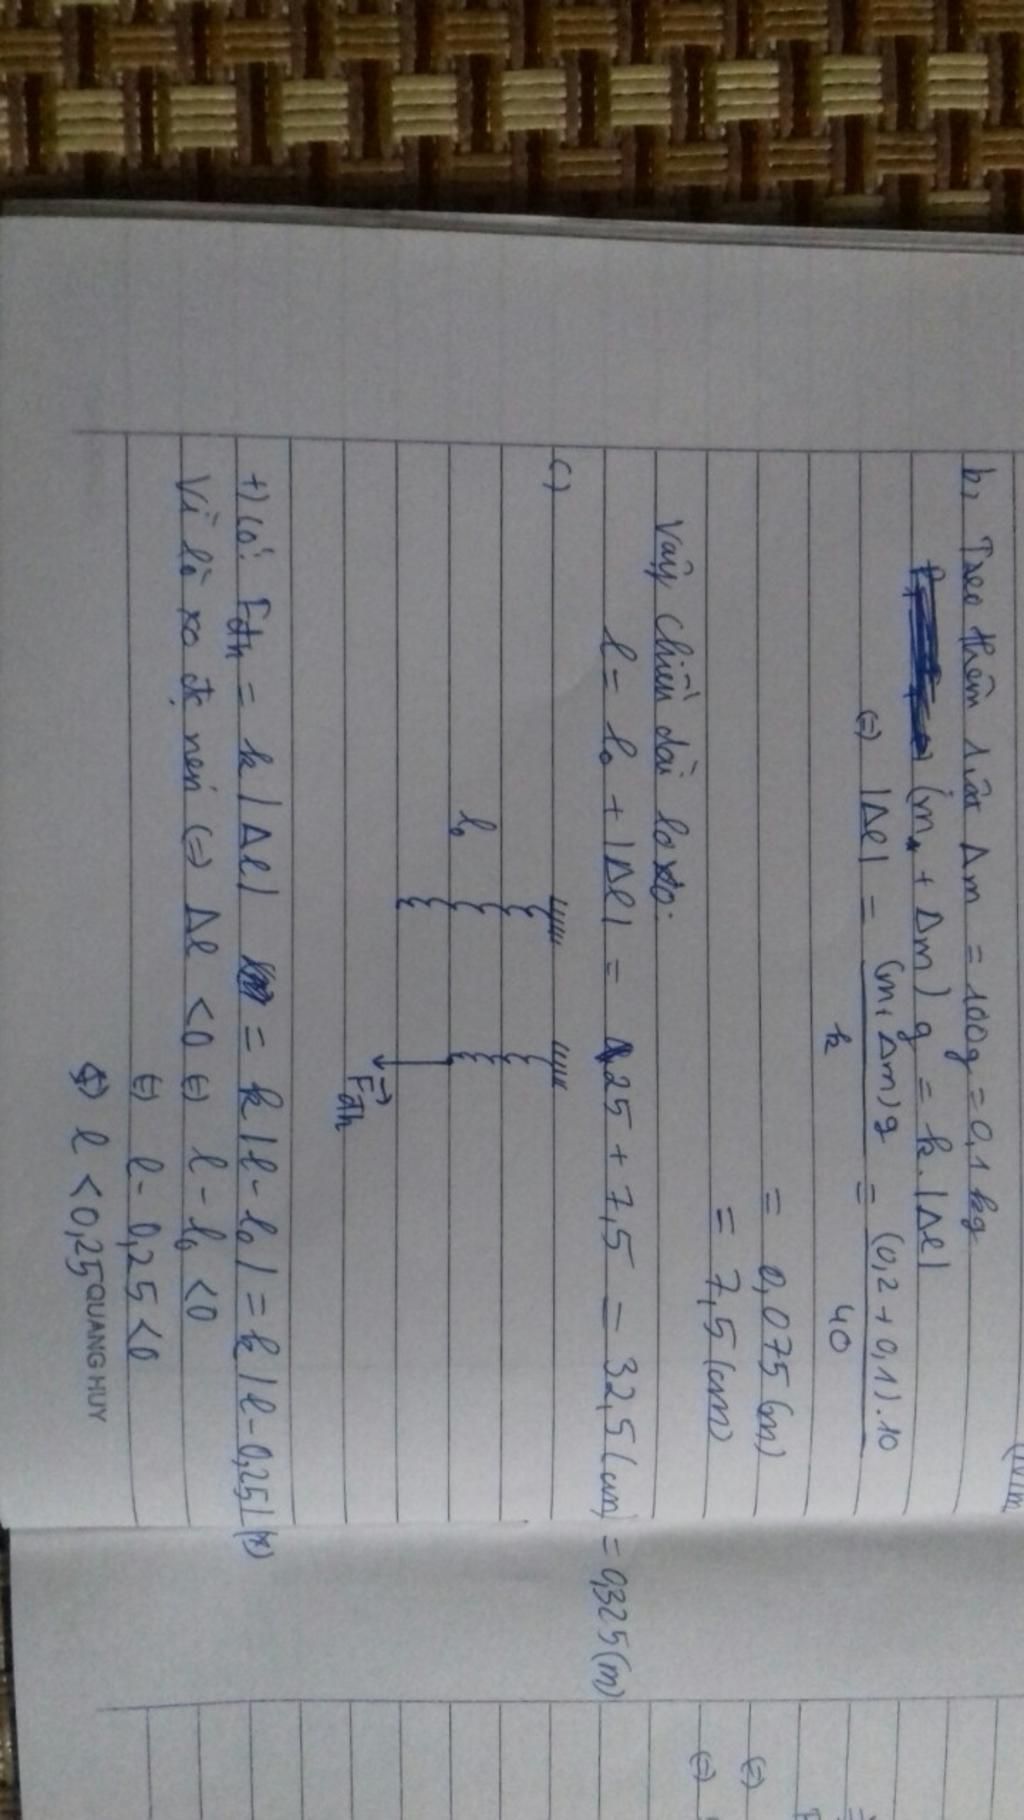 (N/m
b, Treo thêm vật Δm = 100g = 0,1 kg
(m + Δm) g = k.|Δl|
(=) |Δl| = (m + Δm)g / k = (0,2 + 0,1).10 / 40
= 0,075 (m)
= 7,5 (cm)
Vậy chiều dài lò xo:
l = l₀ + |Δl| = 25 + 7,5 = 32,5 (cm) = 0,325 (m)
c)
l₀
Fđh
+) Có: Fđh = k |Δl| = k |l - l₀| = k |l - 0,25| (*)
Vì lò xo đx nén (=) Δl < 0 (=) l - l₀ < 0
(=) l - 0,25 < 0
(=) l < 0,25
QUANG HUY
(=)
(=)